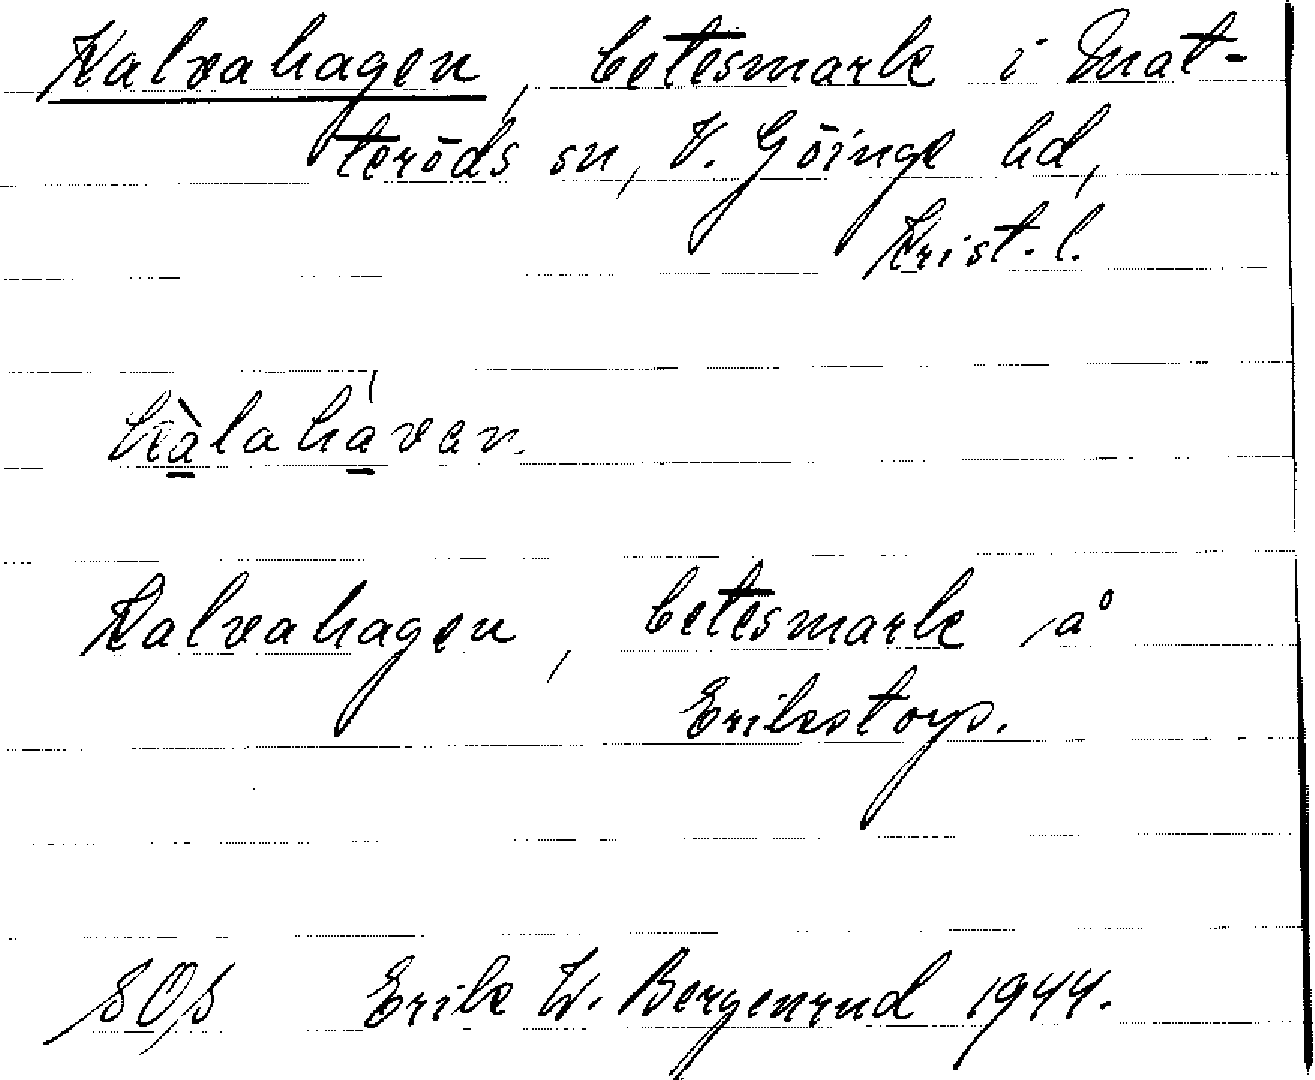 Kalvahagen, betesmark i Mat-
teröds sn, V. Göinge hd,
Krist. l.
kàlahávan.
Kalvahagen, betesmark å
Erikstorp.
SOS Erik W. Bergenrud 1944.